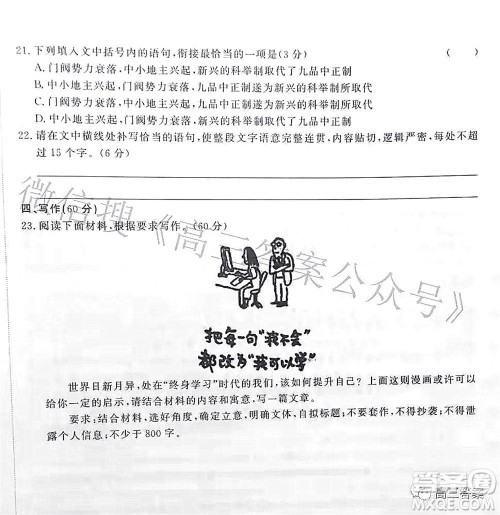 21.下列填入文中括号内的语句,衔接最恰当的一项是(3分)( )
A.门阀势力衰落,中小地主兴起,新兴的科举制取代了九品中正制
B.中小地主兴起,门阀势力衰落,九品中正制遂为新兴的科举制所取代
C.中小地主兴起,门阀势力衰落,新兴的科举制取代了九品中正制
D.门阀势力衰落,中小地主兴起,九品中正制遂为新兴的科举制所取代
22.请在文中横线处补写恰当的语句,使整段文字语意完整连贯,内容贴切,逻辑严密,每处不超
过15个字。(6分)
四、写作(60分)
23.阅读下面材料,根据要求写作。(60分)
把每一句“我不会”
都改为“我可以学”
世界日新月异,处在“终身学习”时代的我们,该如何提升自己?上面这则漫画或许可以
给你一定的启示,请结合材料的内容和寓意,写一篇文章。
要求:结合材料,选好角度,确定立意,明确文体,自拟标题;不要套作,不得抄袭;不得泄
露个人信息;不少于800字。
微信搜《高三答案公众号》
高三答案